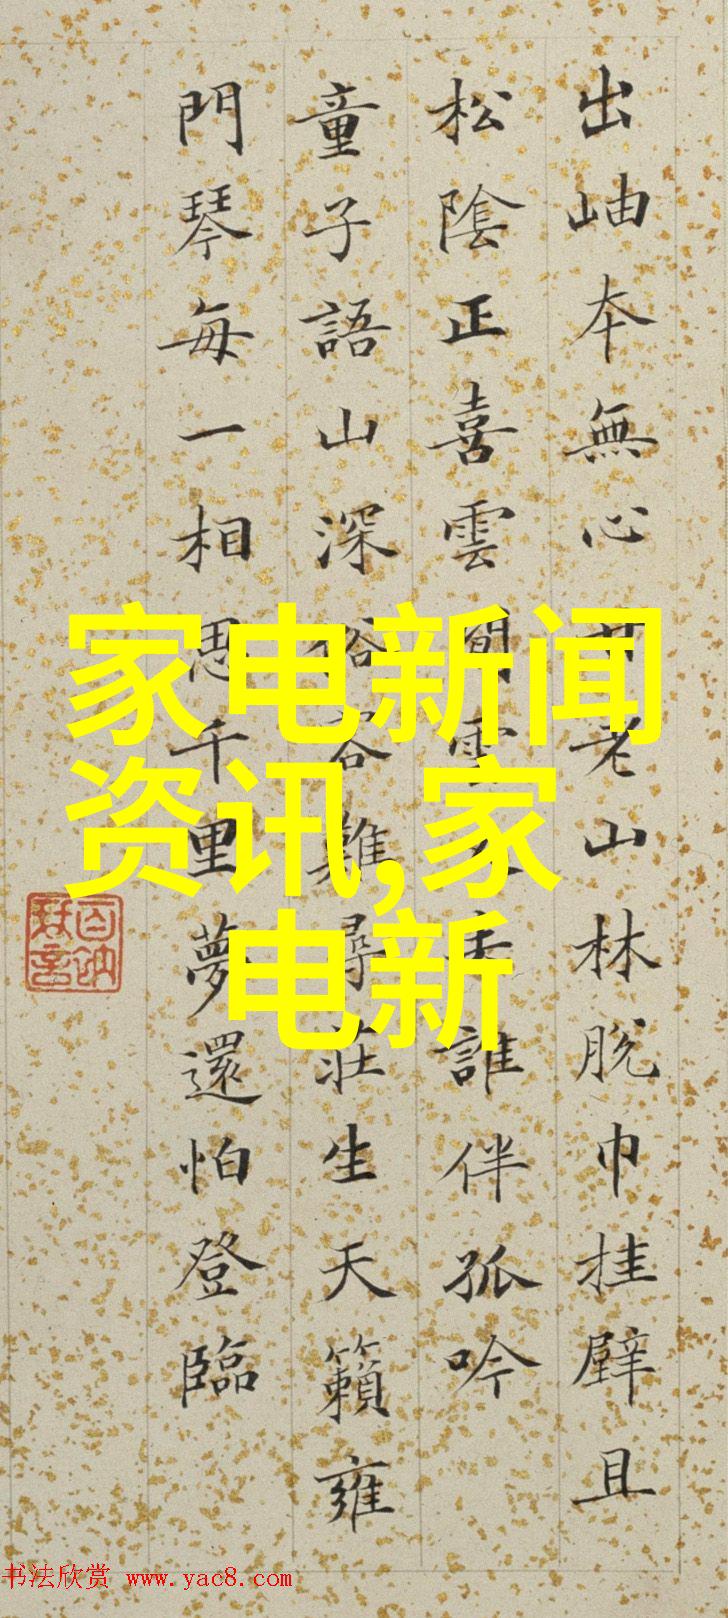 出岫本無心老山林脫巾挂壁且
松陰正喜雲雲誰伴孤吟
童子語山深俗客難尋莊生天籟雍
門琴每一相思千里夢還怕登臨
家电新闻
资讯,家
电新
书法欣赏 www.yac8.com